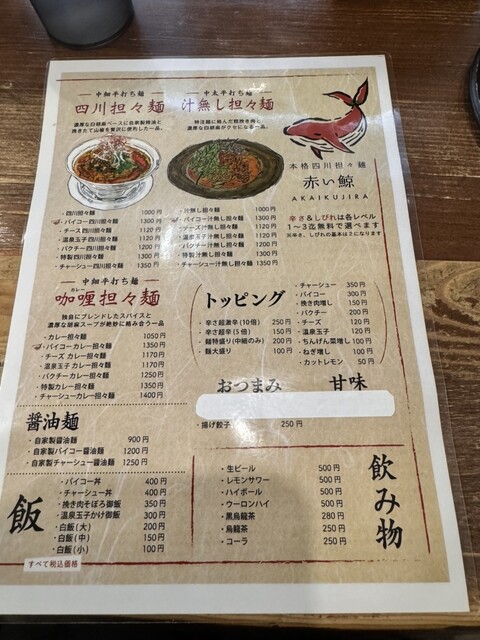 中細平打ち麺
四川担々麺
濃厚な白胡麻ベースに自家製辣油と
挽きたて山椒を贅沢に使用した一品。
・四川担々麺 1000円
・パイコー四川担々麺 1300円
・チーズ四川担々麺 1120円
・温泉玉子四川担々麺 1120円
・パクチー四川担々麺 1200円
・特製四川担々麺 1300円
・チャーシュー四川担々麺 1350円
中太平打ち麺
汁無し担々麺
特注麺に絡んだ粗挽き肉と
濃厚な白胡麻がクセになる一品。
・汁無し担々麺 1000円
・パイコー汁無し担々麺 1300円
・チーズ汁無し担々麺 1120円
・温泉玉子汁無し担々麺 1120円
・パクチー汁無し担々麺 1200円
・特製汁無し担々麺 1300円
・チャーシュー汁無し担々麺 1350円
本格四川担々麺
赤い鯨
AKAIKUJIRA
辛さ&しびれは各レベル
1〜3迄無料で選べます
※辛さ、しびれの基本は2になります
中細平打ち麺
カレー
咖喱担々麺
独自にブレンドしたスパイスと
濃厚な胡麻スープが絶妙に絡み合う一品
・カレー担々麺 1050円
・パイコーカレー担々麺 1350円
・チーズカレー担々麺 1170円
・温泉玉子カレー担々麺 1170円
・パクチーカレー担々麺 1250円
・特製カレー担々麺 1350円
・チャーシューカレー担々麺 1400円
トッピング
・辛さ超激辛(10倍) 250円
・辛さ超辛(5倍) 150円
・麺特盛り(中細のみ) 200円
・麺大盛り 100円
・チャーシュー 350円
・パイコー 300円
・挽き肉増し 150円
・パクチー 200円
・チーズ 120円
・温泉玉子 120円
・ちんげん菜増し 100円
・ねぎ増し 100円
・カットレモン 50円
おつまみ
甘味
・揚げ餃子 250円
醤油麺
・自家製醤油麺 900円
・自家製パイコー醤油麺 1200円
・自家製チャーシュー醤油麺 1250円
飯
・パイコー丼 400円
・チャーシュー丼 400円
・挽き肉そぼろ御飯 350円
・温泉玉子かけ御飯 300円
・白飯(大) 200円
・白飯(中) 150円
・白飯(小) 100円
すべて税込価格
飲み物
・生ビール 500円
・レモンサワー 500円
・ハイボール 500円
・ウーロンハイ 500円
・黒烏龍茶 280円
・烏龍茶 250円
・コーラ 250円